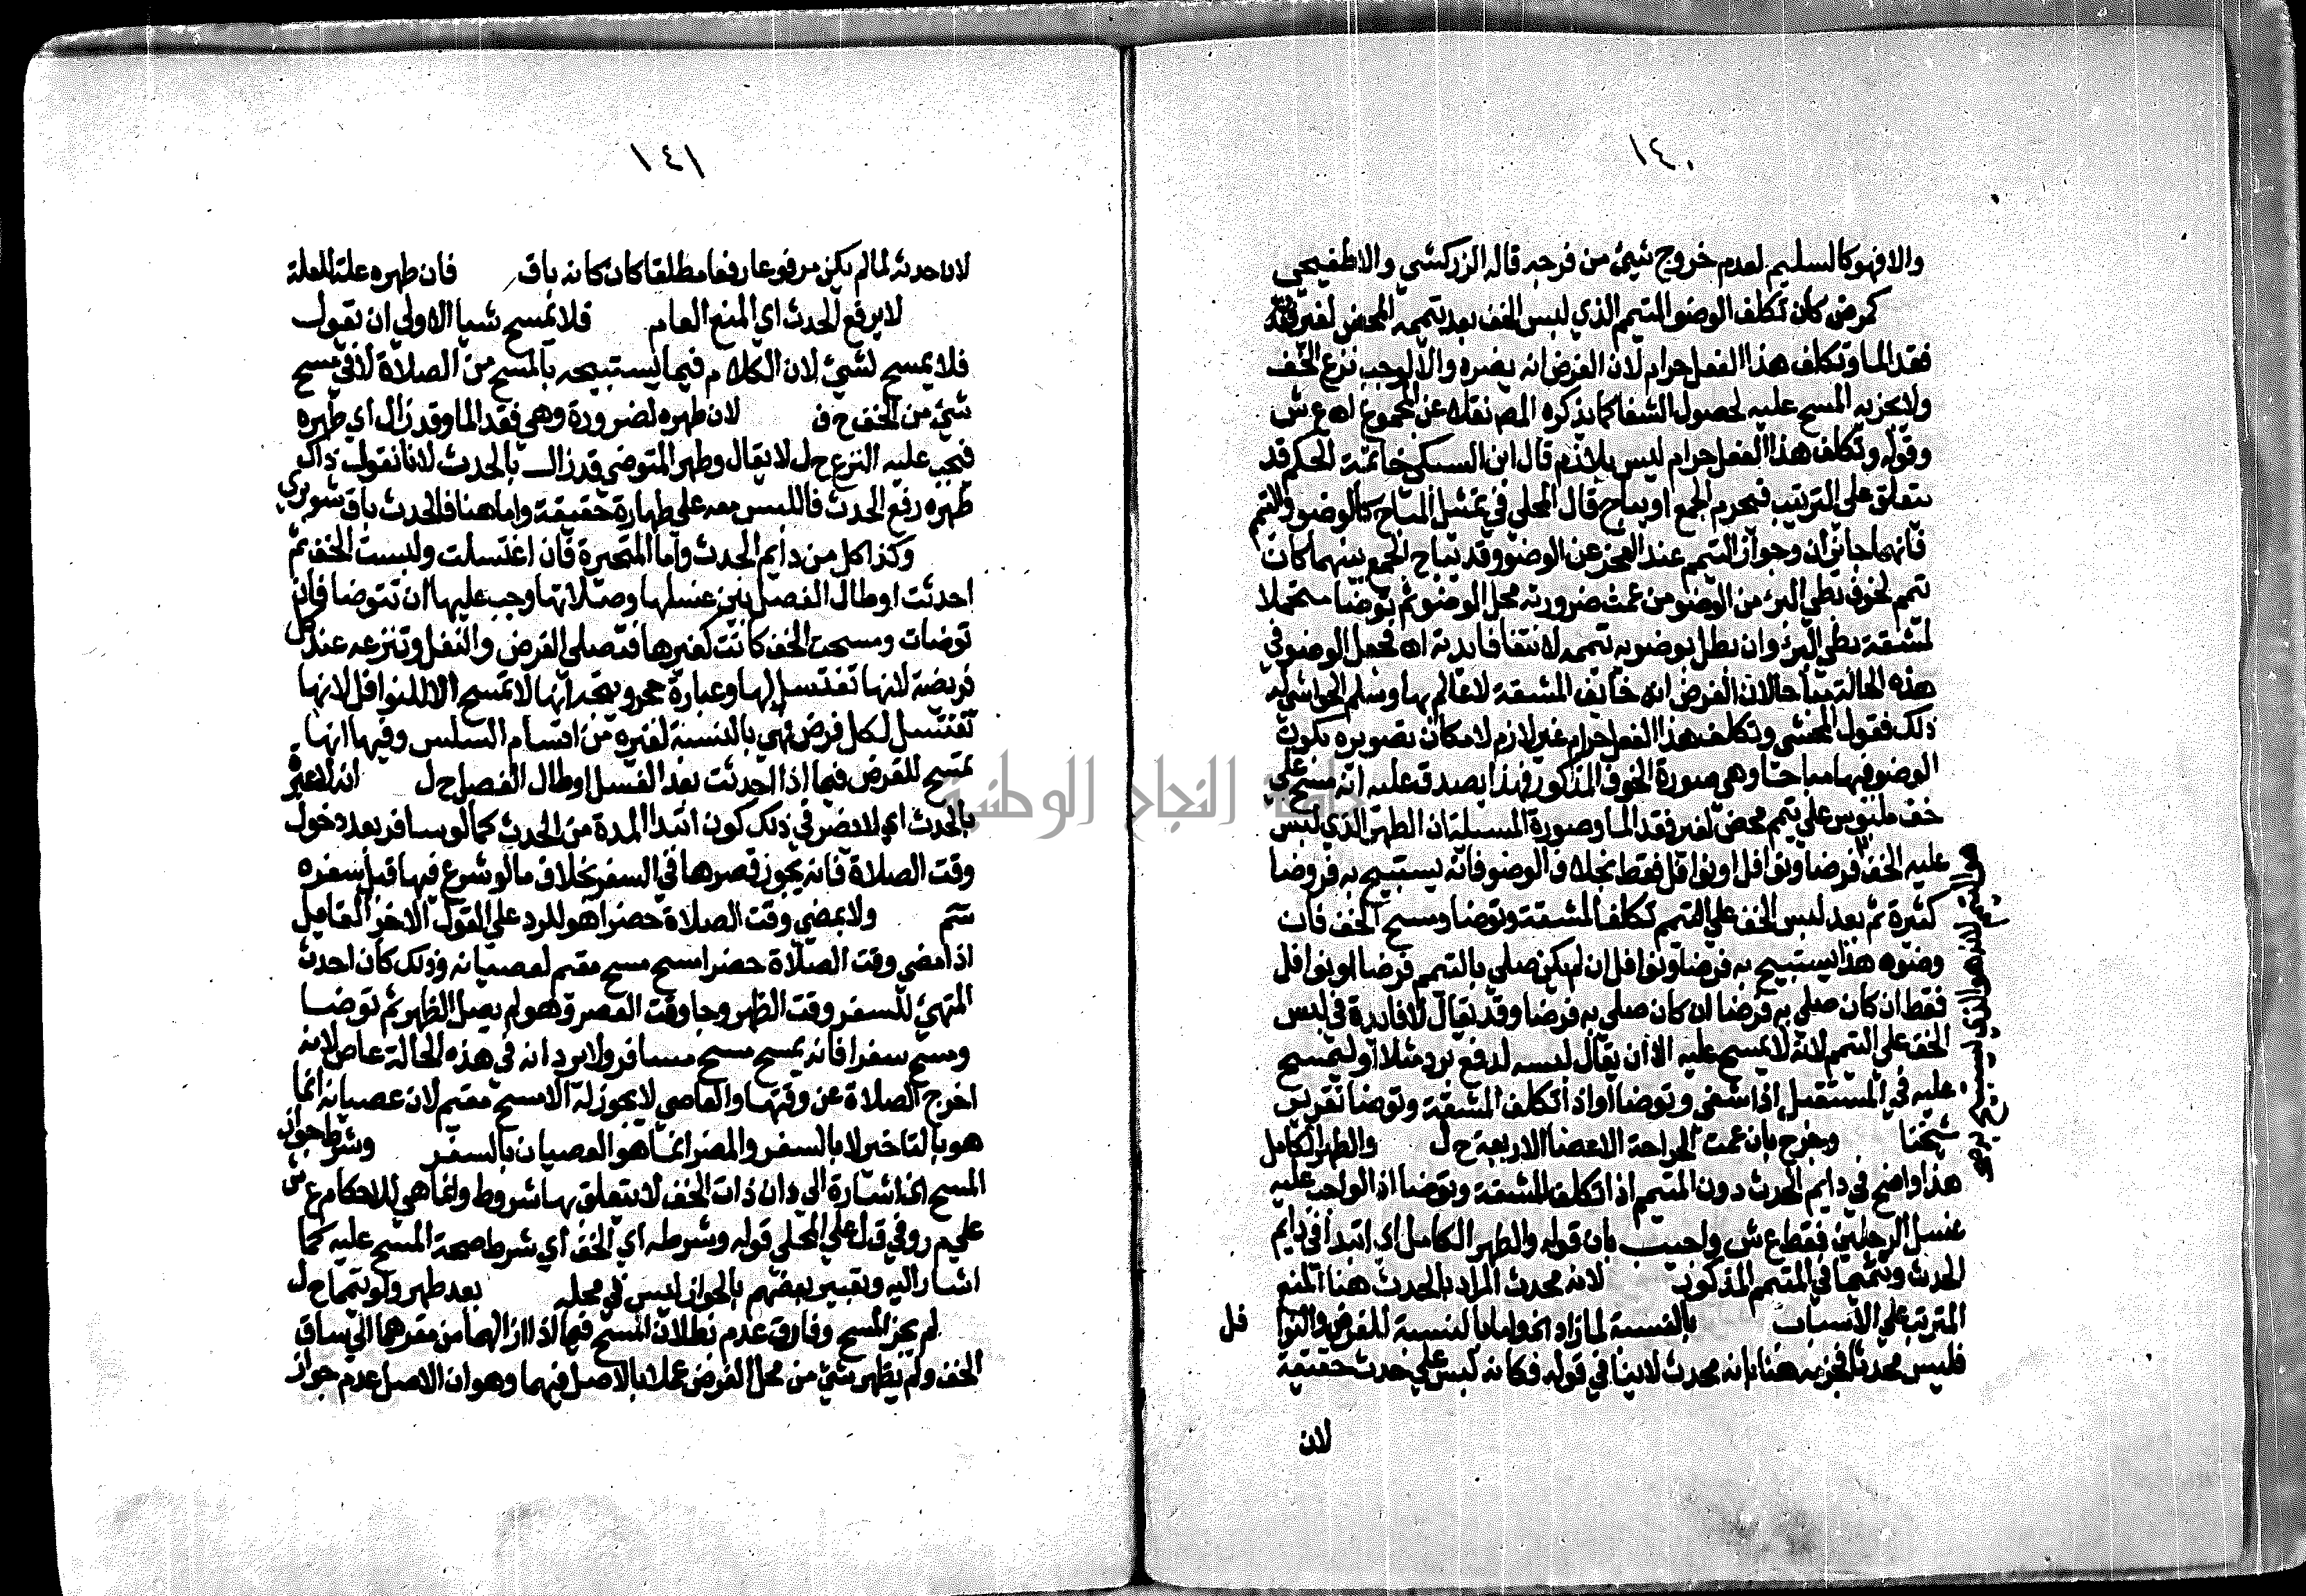 ١٤٠
والا فهو كالسليم لعدم خروج شيئ من فرجه قاله الزركشي والاطفيحي
كمرض كان تكلف الوضو المتيمم الذي لبس الخف بعد تيممه المحض لغير
فقد الما وتكلف هذا الفعل حرام لان الفرض انه يضره والا لوجب نزع الخف
ولا يجزيه المسح عليه لحصول الشفا كما يذكره المص نقلا عن المجموع اه ع ش
وقوله وتكلف هذا الفعل حرام ليس بلازم قال ابن السبكي خاتمة الحكم قد
يتعلق على الترتيب فيحرم الجمع او يباح قال المحلي في تمثيل المباح كالوضو والتيمم
فانهما جائزان وجواز التيمم عند العجز عن الوضو وقد يباح الجمع بينهما كان
تيمم لخوف بطئ البرئ من الوضو من عمت ضرورته محل الوضو ثم توضا متحملا
لمشقة بطئ البرئ وان بطل بوضوبه تيممه لانتفا فايدته اه فجعل الوضو في
هذه الحالة مباحا لان الفرض انه خايف المشقة لا عالم بها وسلم الحواشي له
ذلك فقول المحشي وتكلف هذا الفعل حرام غير لازم لامكان تصويره بكون
الوضو فيها مباحا وهي صورة الخوف المذكور فهذا يصدق عليه انه مسح علي
خف ملبوس علي تيمم محض لغير فقد الما وصورة المسيلة ان الطهر الذي لبس
عليه الخف فرضا ونوافل او نوافل فقط بخلاف الوضو فانه يستبيح به فروضا
كثيرة ثم بعد لبس الخف علي التيمم تكلف المشقة وتوضا ومسح الخف فان
وضوه هذا يستبيح به فرضا ونوافل ان لم يكن صلي بالتيمم فرضا او نوافل
فقط ان كان صلي به فرضا لان كان صلي به فرضا وقد يقال لا فايدة في لبس
الخف علي التيمم لانه لا يمسح عليه الا ان يقال لبسه لدفع برد مثلا او ليمسح
عليه في المستقبل اذا شفي وتوضا او اذا تكلف المشقة وتوضا تقرير
شيخنا وخرج بان عمت الجراحة الاعضا الاربعة ح ل والطهر الكامل
هذا واضح في دايم الحدث دون المتيمم اذا تكلف المشقة وتوضا اذ الواجب عليه
غسل الرجلين فقط ع ش واجيب بان قوله والطهر الكامل اي ابتدا في دايم
الحدث وتتميما في المتيمم المذكور لانه محدث المراد بالحدث هنا المنع
المترتب علي الاسباب بالنسبة لما زاد الخ واما بالنسبة للفرض والنوا فل
فليس محدثا فجزمه هنا بانه محدث لا ينافي قوله فكانه لبس علي حدث حقيقة
لان
هو التيمم لانه هو الذي يستبيح به
١٤١
لان حدثه لما لم يكن مرفوعا رفعا مطلقا كان كانه باق فان طهره علة للعلة
لا يرفع الحدث اي المنع العام فلا يمسح شيا الاولي ان تقول
فلا يمسح لشيئ لان الكلام فيما يستبيحه بالمسح من الصلاة لا في مسح
شيئ من الخف ح ف لان طهره لضرورة وهي فقد الما وقد زال اي طهره
فيجب عليه النزع ح ل لا يقال وطهر المتوضي قد زال بالحدث لانا نقول ذاك
طهره رفع الحدث فاللبس معه علي طهارة حقيقة واما هنا فالحدث باق شوبري
وكذا كل من دايم الحدث واما المتحيرة فان اغتسلت ولبست الخف ثم
احدثت او طال الفصل بين غسلها وصلاتها وجب عليها ان تتوضا فان
توضات ومسحت الخف كانت كغيرها فتصلي الفرض والنفل وتنزعه عند كل
فريضة لانها تغتسل لها وعبارة حجر ويتجه انها لا تمسح الا للنوافل لانها
تغتسل لكل فرض فهي بالنسبة لغيره من اقسام السلس وفيها انها
تمسح للفرض فيما اذا احدثت بعد الغسل او طال الفصل ح ل انه لا عبرة
بالحدث اي لا يضر في ذلك كون ابتدا المدة من الحدث كما لو سافر بعد دخول
وقت الصلاة فانه يجوز قصرها في السفر بخلاف ما لو شرع فيها قبل سفره
ولا بمضي وقت الصلاة حضرا هو للرد علي القول الاخر القايل
اذا مضي وقت الصلاة حضرا مسح مسح مقيم لعصيانه وذلك كان احدث
المتهيئ للسفر وقت الظهر وجا وقت العصر وهو لم يصل الظهر ثم توضا
ومسح سفرا فانه يمسح مسح مسافر ولا يرد انه في هذه الحالة عاص لانه
اخرج الصلاة عن وقتها والعاصي لا يجوز له الا مسح مقيم لان عصيانه انما
هو بالتاخير لا بالسفر والمضر انما هو العصيان بالسفر وشرط جواز
المسح الخ اشارة الي ان ذات الخف لا يتعلق بها شروط وانما هي للاحكام ع ش
علي م ر وفي ق ل علي المحلي قوله وشرطه اي الخف اي شرط صحة المسح عليه كما
اشار اليه وتعبير بعضهم بالجواز ليس في محله بعد طهر ولو تيمما ح ل
لم يجز المسح وفارق عدم بطلان المسح فيما اذا ازالهما من مقرهما الي ساق
الخف ولم يظهر شيئ من محل الفرض عملا بالاصل فيهما وهو ان الاصل عدم جواز
جامعة النجاح الوطنية